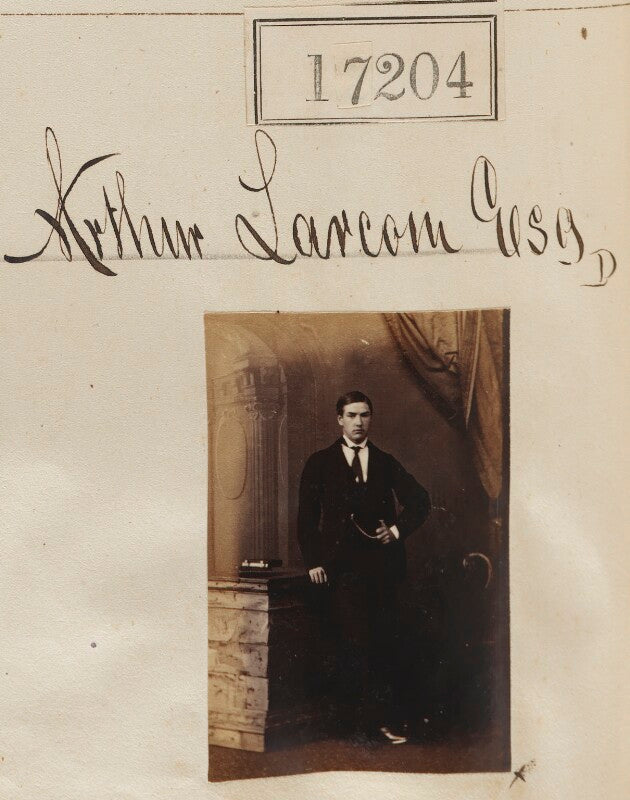 17204
Arthur Larcom Esq
D